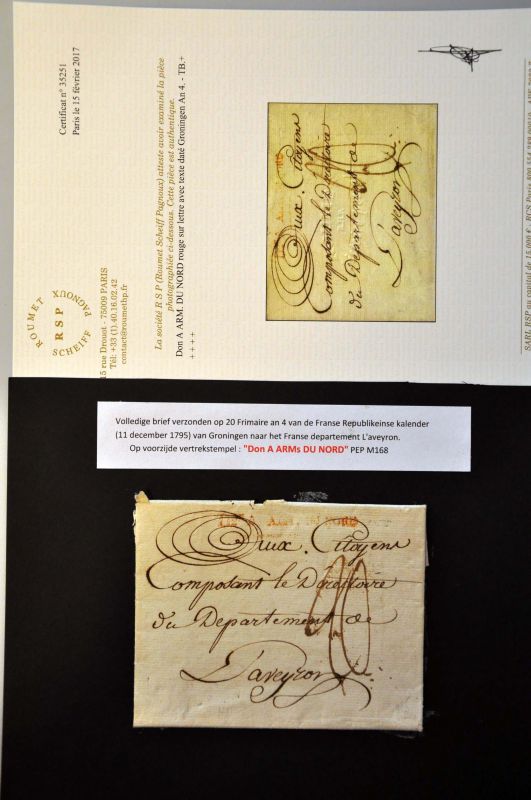 Certificat n° 35251
Paris le 15 février 2017
ROUMET PAGNOUX SCHEIFF
RSP
15 rue Drouot - 75009 PARIS
Tél: +33 (1).40.16.02.42
contact@roumethp.fr
La société R S P (Roumet Scheiff Pagnoux) atteste avoir examiné la pièce
photographiée ci-dessous. Cette pièce est authentique.
Don A ARM. DU NORD rouge sur lettre avec texte daté Groningen An 4. - TB.+
++++
Aux Citoyens
Composant le Directoire
du Departement de
L'aveyron
SARL RSP au capital de 15.000 €
Volledige brief verzonden op 20 Frimaire an 4 van de Franse Republikeinse kalender
(11 december 1795) van Groningen naar het Franse departement L'aveyron.
Op voorzijde vertrekstempel : "Don A ARMs DU NORD" PEP M168
Aux Citoyens
Composant le Directoire
du Departement de
L'aveyron